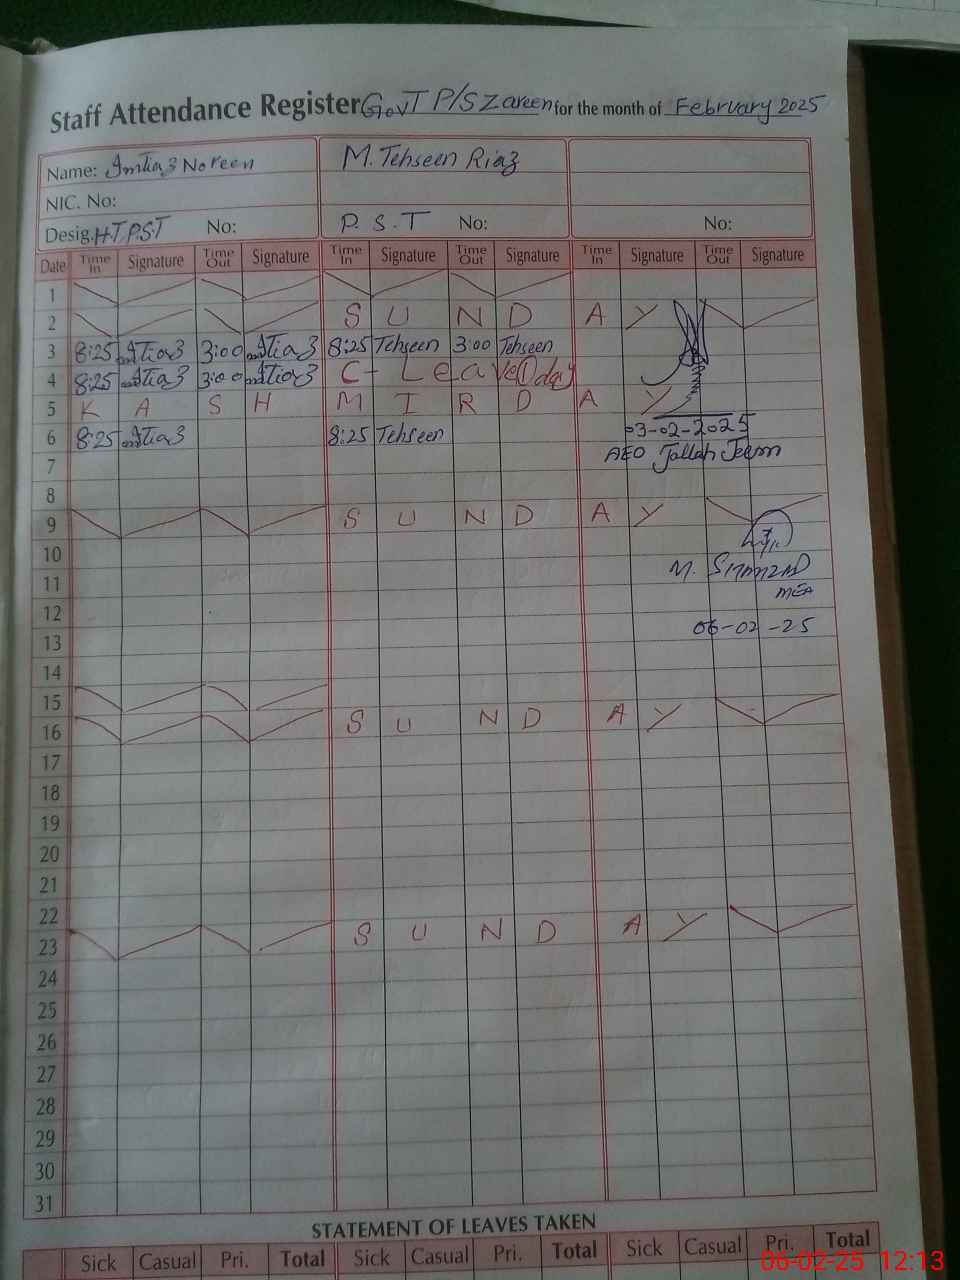 Staff Attendance Register GovT P/S Zareen for the month of February 2025
Name: Imtiaz Noreen M. Tehseen Riaz
NIC. No:
Desig. H.T.P.S.T No: P.S.T No: No:
Date Time In Signature Time Out Signature Time In Signature Time Out Signature Time In Signature Time Out Signature
1
2 SUNDAY
3 8:25 3:00 8:25 Tehseen 3:00 Tehseen
4 8:25 3:00 C-Leave 1 day
5 KASHMIR DAY
03-02-2025
6 8:25 8:25 Tehseen
AEO
7
8
9 SUNDAY
10
11 M. SHAHZAD
12 MEA
13 06-02-25
14
15
16 SUNDAY
17
18
19
20
21
22
23 SUNDAY
24
25
26
27
28
29
30
31
STATEMENT OF LEAVES TAKEN
Sick Casual Pri. Total Sick Casual Pri. Total Sick Casual Pri. Total
06-02-25 12:13